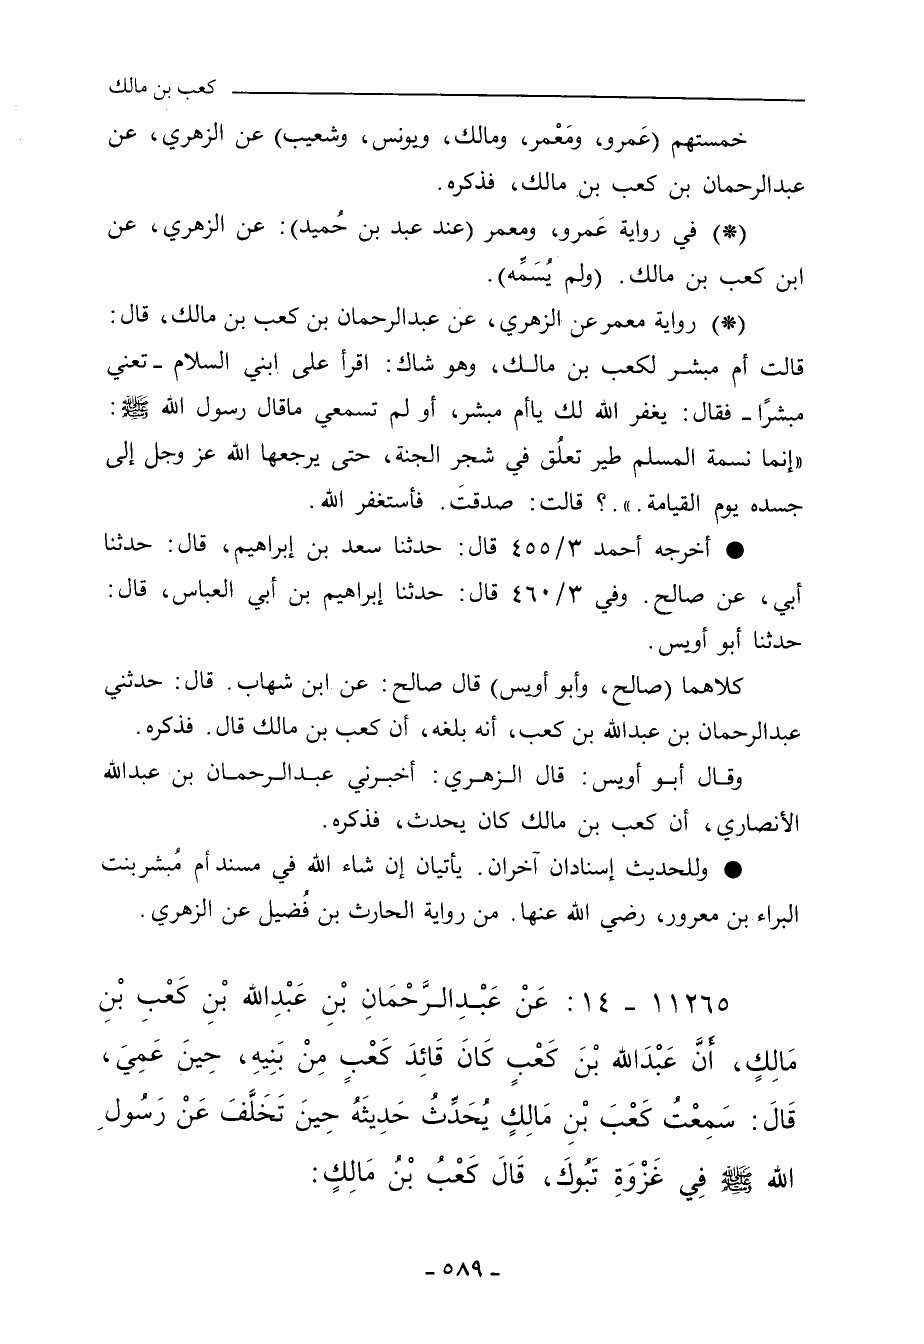 كعب بن مالك
خمستهم (عَمرو، ومَعْمر، ومالك، ويونس، وشعيب) عن الزهري، عن
عبدالرحمان بن كعب بن مالك، فذكره.
(*) في رواية عَمرو، ومعمر (عند عبد بن حُميد): عن الزهري، عن
ابن كعب بن مالك. (ولم يُسَمِّه).
(*) رواية معمر عن الزهري، عن عبدالرحمان بن كعب بن مالك، قال:
قالت أم مبشر لكعب بن مالك، وهو شاك: اقرأ على ابني السلام ـ تعني
مبشرًا ـ فقال: يغفر الله لك ياأم مبشر، أو لم تسمعي ماقال رسول الله ﷺ:
«إنما نسمة المسلم طير تعلُق في شجر الجنة، حتى يرجعها الله عز وجل إلى
جسده يوم القيامة.».؟ قالت: صدقتَ. فأستغفر الله.
● أخرجه أحمد ٤٥٥/٣ قال: حدثنا سعد بن إبراهيم، قال: حدثنا
أبي، عن صالح. وفي ٤٦٠/٣ قال: حدثنا إبراهيم بن أبي العباس، قال:
حدثنا أبو أويس.
كلاهما (صالح، وأبو أويس) قال صالح: عن ابن شهاب. قال: حدثني
عبدالرحمان بن عبدالله بن كعب، أنه بلغه، أن كعب بن مالك قال. فذكره.
وقال أبو أويس: قال الزهري: أخبرني عبدالرحمان بن عبدالله
الأنصاري، أن كعب بن مالك كان يحدث، فذكره.
● وللحديث إسنادان آخران. يأتيان إن شاء الله في مسند أم مُبشر بنت
البراء بن معرور، رضي الله عنها. من رواية الحارث بن فُضيل عن الزهري.
١١٢٦٥ ـ ١٤: عَنْ عَبْدِالرَّحْمَانِ بْنِ عَبْدِالله بْنِ كَعْبِ بْنِ
مَالِكٍ، أَنَّ عَبْدَالله بْنَ كَعْبٍ كَانَ قَائِدَ كَعْبٍ مِنْ بَنِيهِ، حِينَ عَمِيَ،
قَالَ: سَمِعْتُ كَعْبَ بْنَ مَالِكٍ يُحَدِّثُ حَدِيثَهُ حِينَ تَخَلَّفَ عَنْ رَسُولِ
الله ﷺ فِي غَزْوَةِ تَبُوكَ، قَالَ كَعْبُ بْنُ مَالِكٍ:
ـ ٥٨٩ ـ